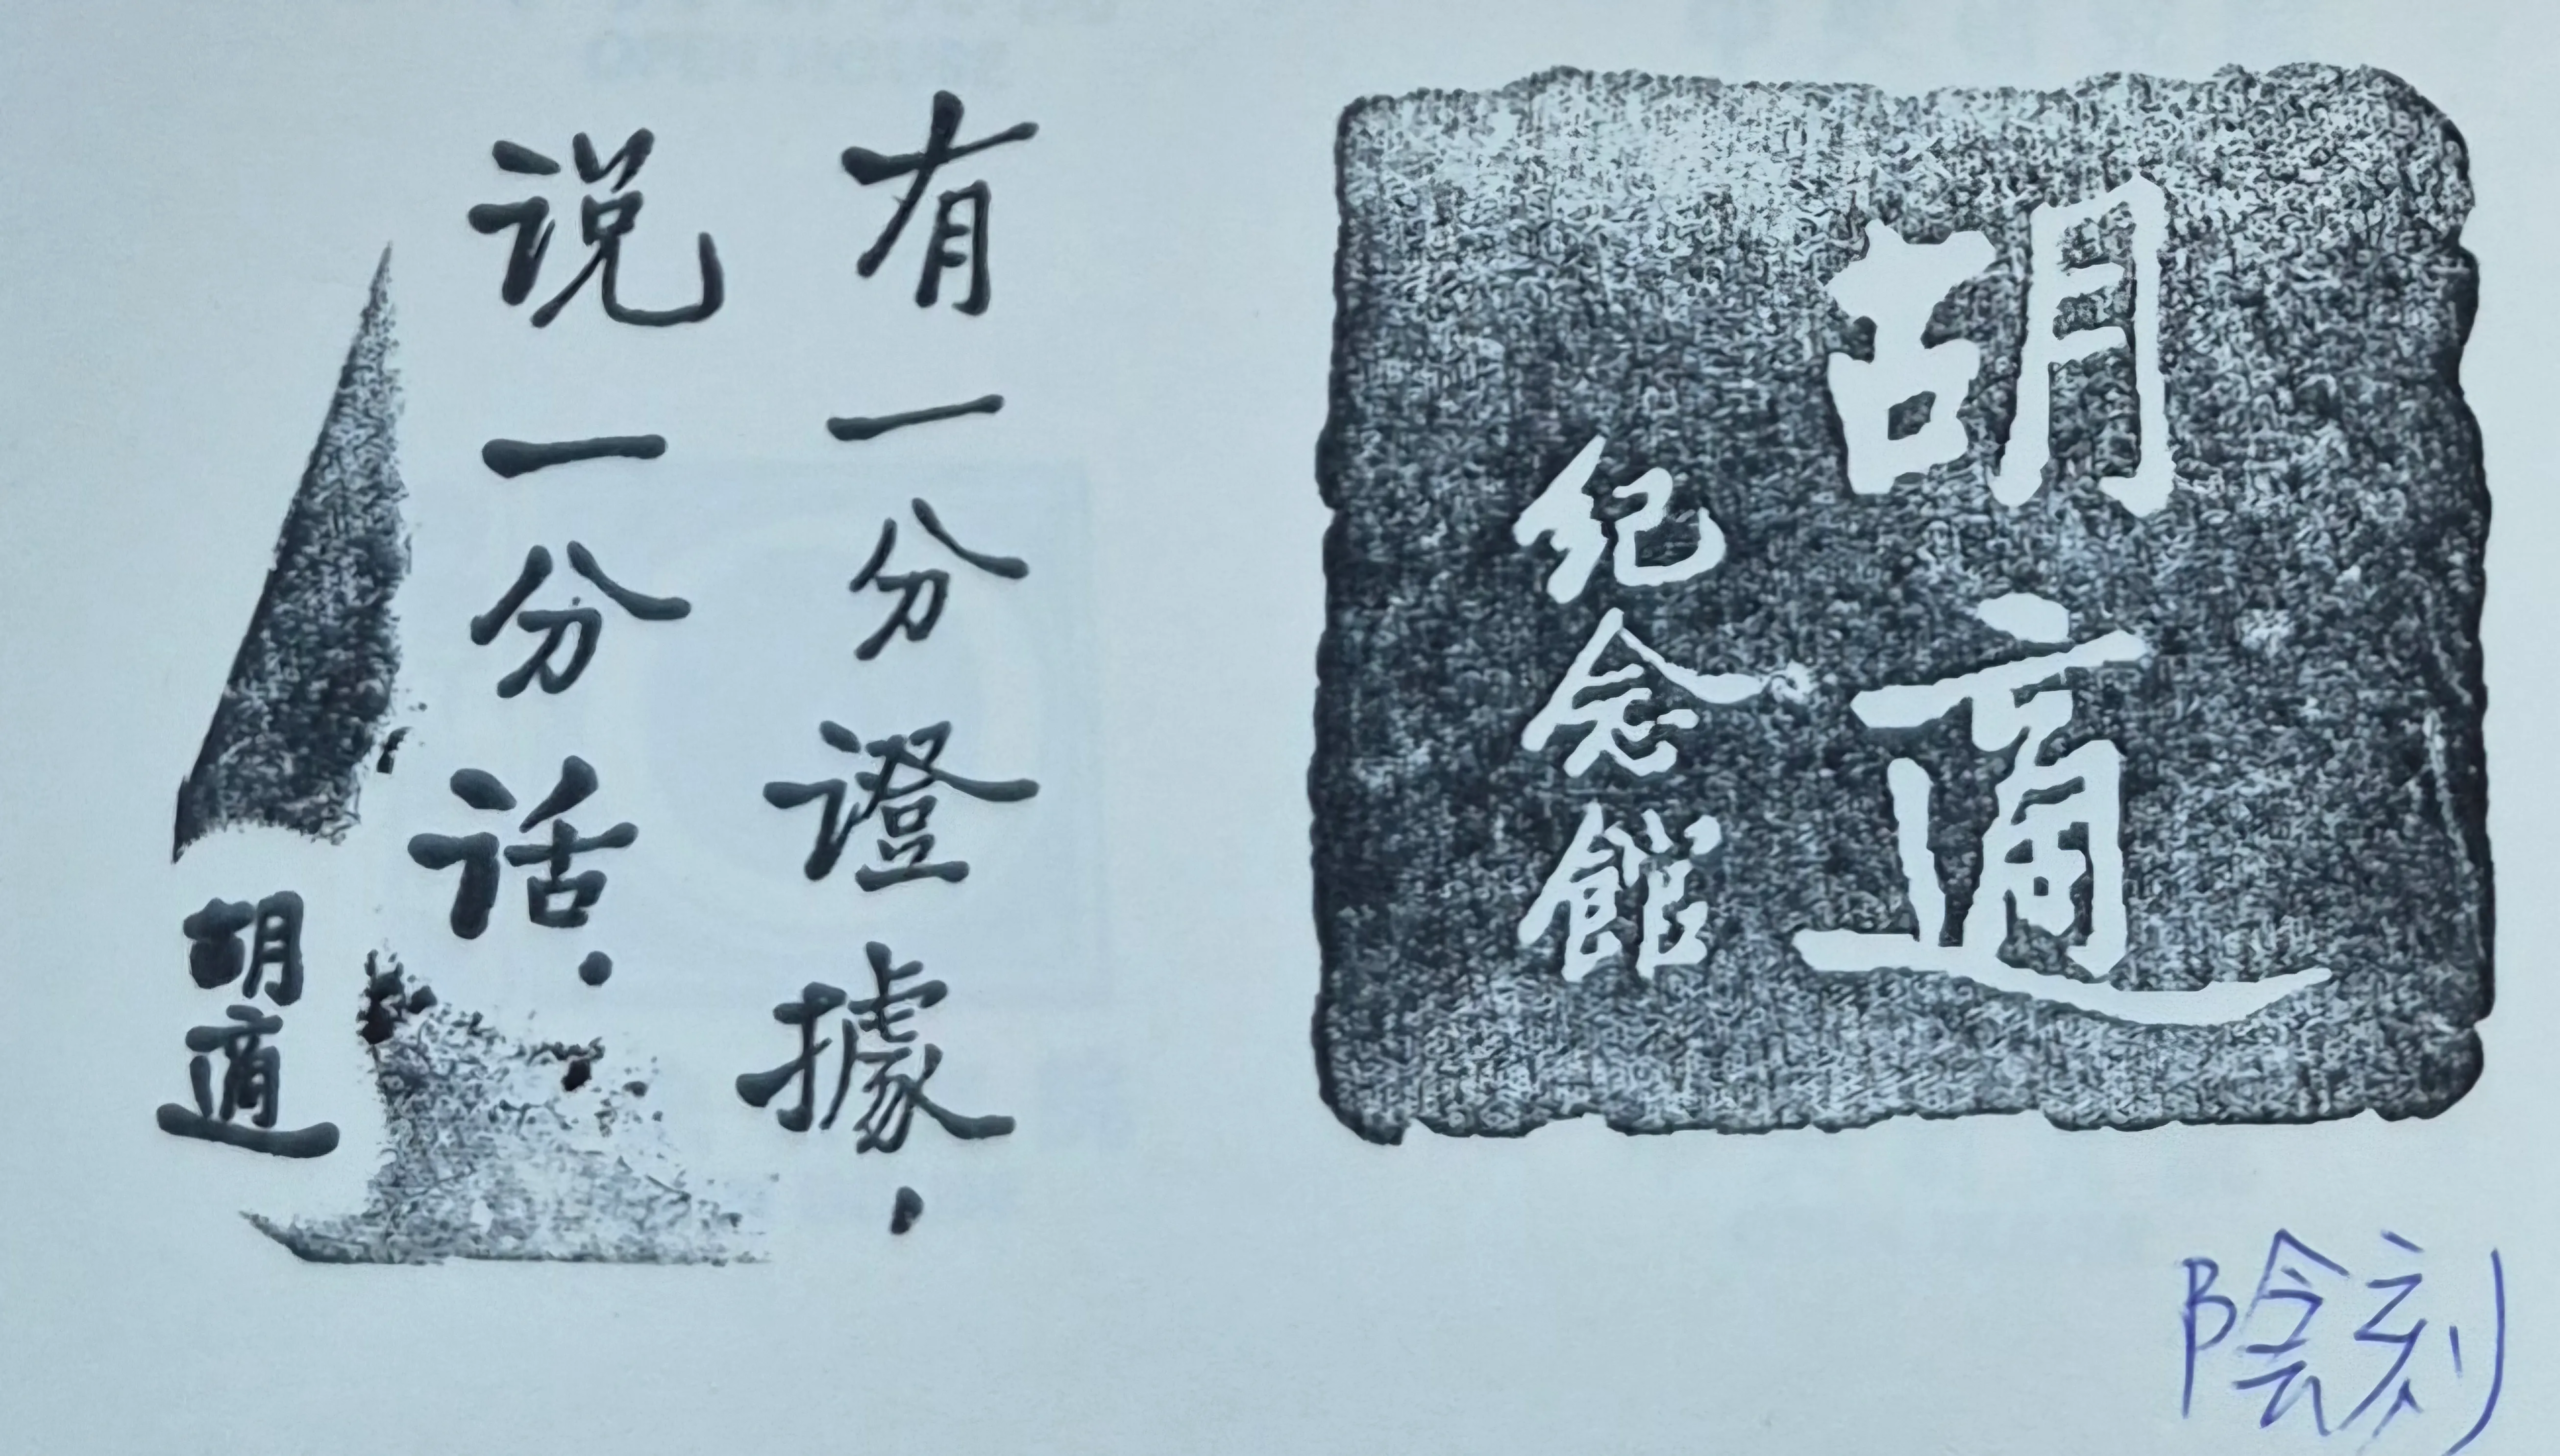 胡適
紀念館
有一分證據，
说一分话．
胡適
陰刻